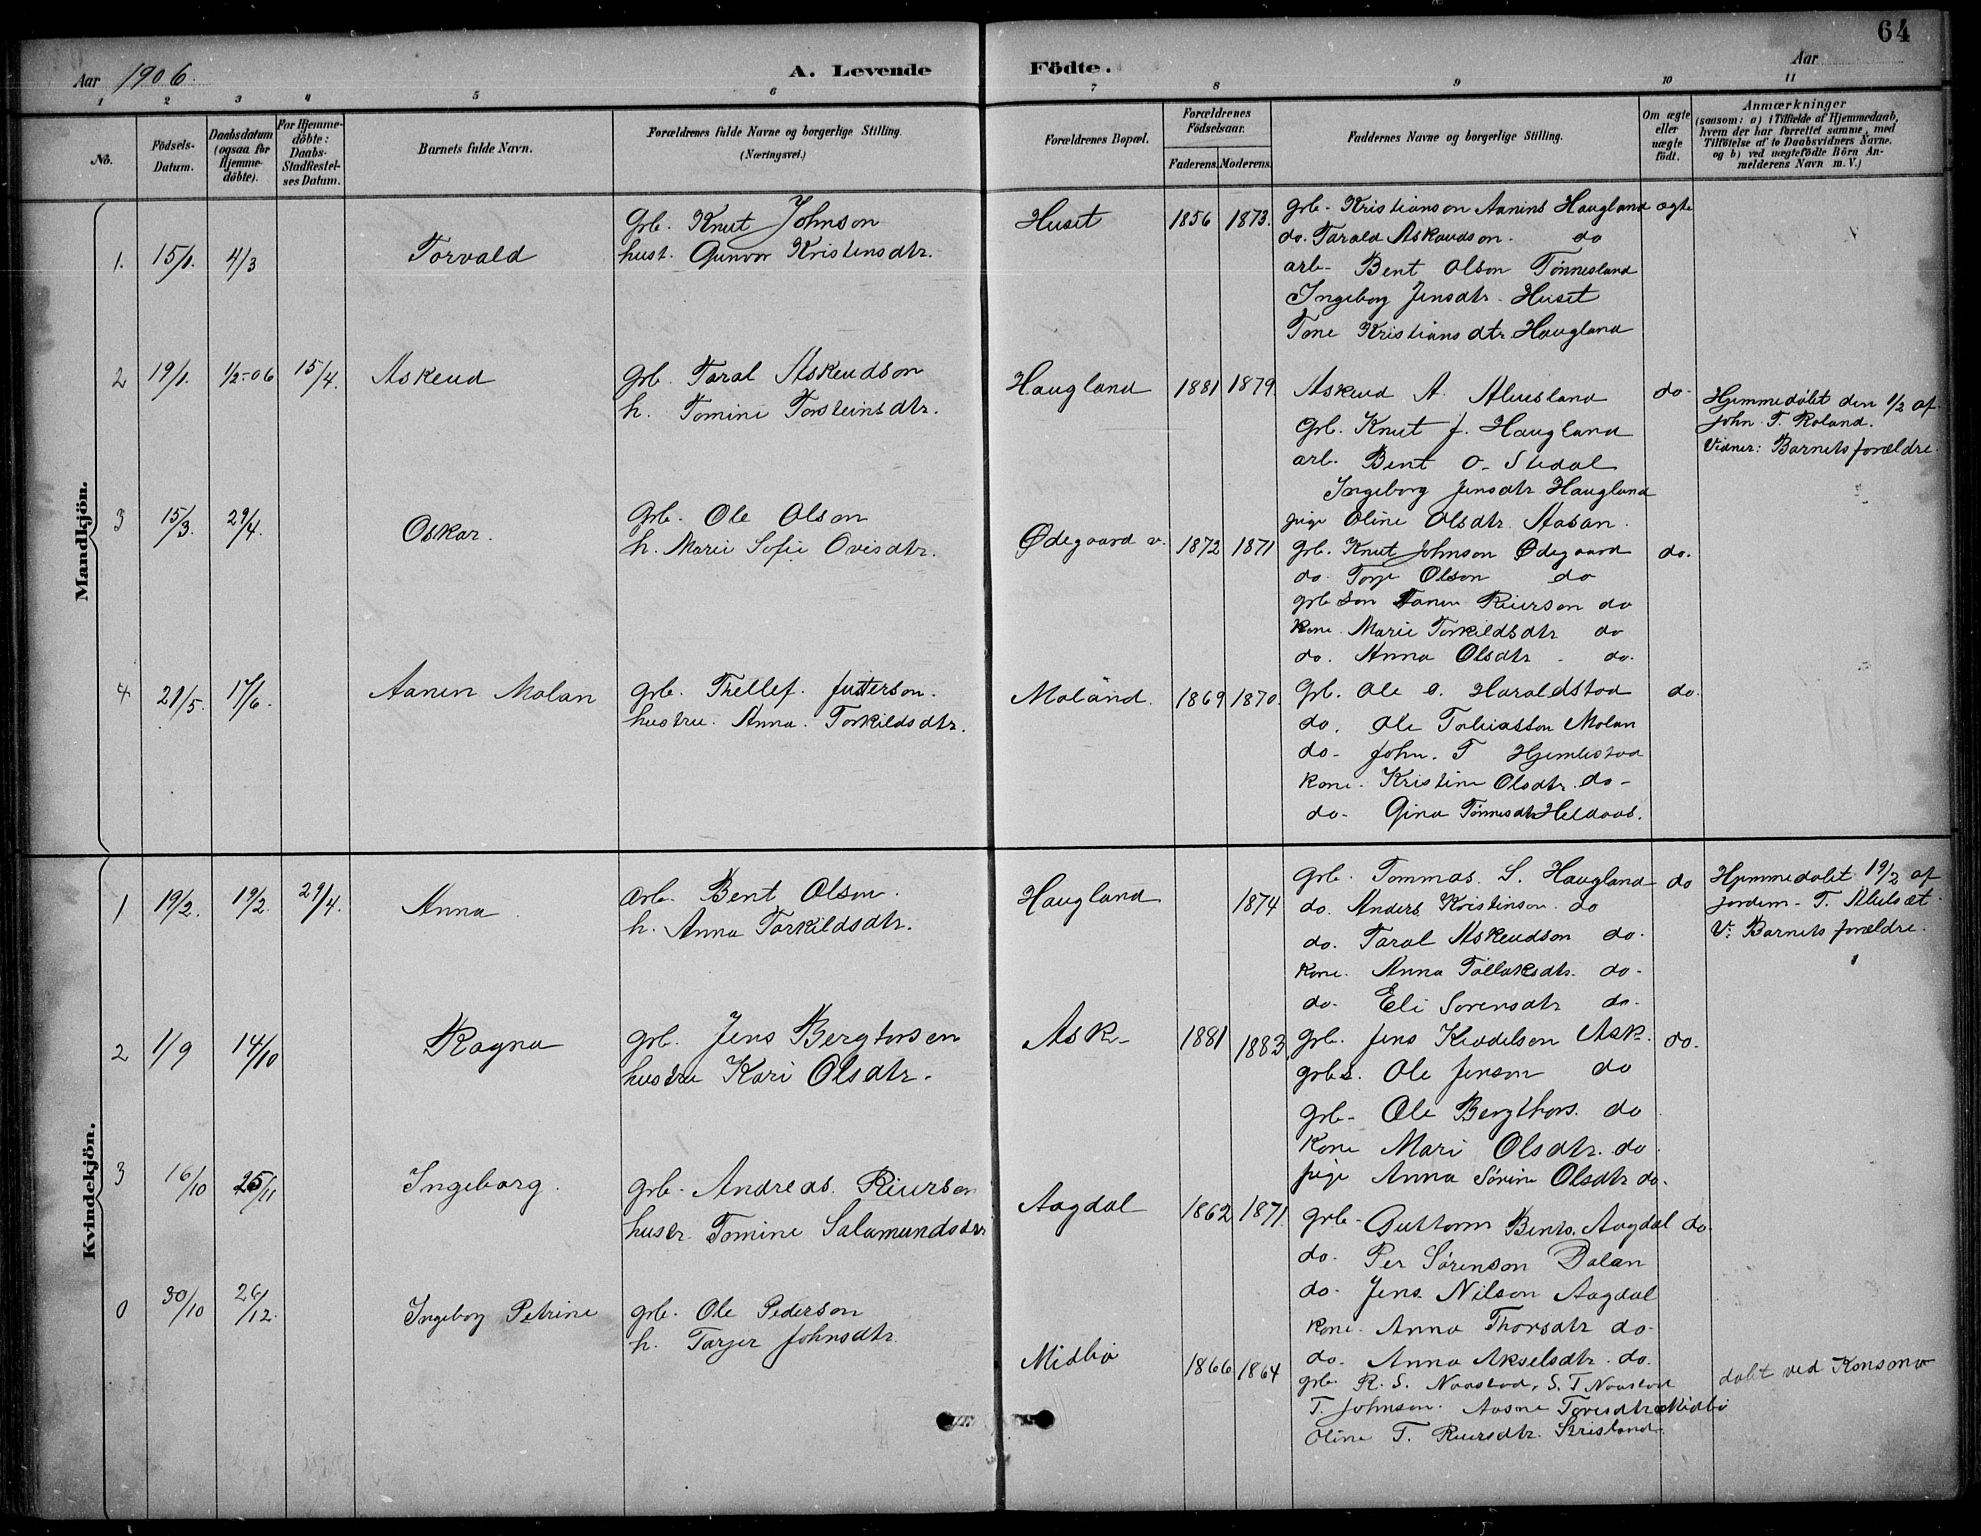 64
Aar 1906.
A. Levende Födte.
Aar
1 2 3 4 5 6 7 8 9 10 11
No.
Födsels-Datum.
Daabsdatum (ogsaa for Hjemme-döbte).
For Hjemme-döbte: Daabs-Stadfestel-ses Datum.
Barnets fulde Navn.
Forældrenes fulde Navne og borgerlige Stilling.
(Næringsvei.)
Forældrenes Bopæl.
Forældrenes Födselsaar.
Faderens. Moderens.
Faddernes Navne og borgerlige Stilling.
Om ægte eller uægte födt.
Anmærkninger
(saasom: a) i Tilfælde af Hjemmedaab,
hvem der har forrettet samme, med
Tilföielse af to Daabsvidners Navne,
og b) ved uægtefödte Börn An-
melderens Navn m. V.)
Mandkjön.
1. 15/1. 4/3 Torvald
grb. Knut Johnson
hust. Gunvor Kristensdtr.
Huset 1856 1873.
grb. Kristianson Aanins Haugland ægte
do. Tarald Askaudson. do
arb. Bent Olson Tønnesland
Ingeborg Jensdtr. Huset
Tone Kristiansdtr Haugland
2 19/1. 1/2-06 15/4. Askeud
grb. Taral Askeudson
h. Tomine Torsteinsdtr.
Haugland 1881 1879.
Askeud A. do.
Grb. Knut J. Haugland
arb. Bent O. Stedal
Ingeborg Jensdtr Haugland
pige Oline Olsdtr. Aasan.
Hjemmedøbt den 1/2 af
John T. Roland.
Vidner: Barnets forældre.
3 15/3. 29/4. Oskar.
Grb. Ole Olson
h. Marie Sofie Ovisdtr.
Ødegaard v. 1872 1871
grb. Knut Johnson Ødegaard do.
do. Torje Olson do
grb søn Aanen Reierson do
kone. Marie Torkildsdtr do
do. Anna Olsdtr. do.
4 21/5. 17/6. Aanen Molan
grb. Thellef. Justerson.
hustru. Anna. Torkildsdtr.
Moland. 1869 1870.
Grb. Ole O. Haraldstad do.
do. Ole Tobiasson Molan
do. John. T Hjemlestad
kone. Kristine Olsdtr. do-
do- Gina Tønnesdtr Heldaas.
Kvindekjön.
1 19/2. 19/2. 29/4. Anna
Arb. Bent Olson.
h. Anna Torkildsdtr.
Haugland 1874
grb. Tommas. S. Haugland do
do. Anders Kristenson. do
do. Taral Askeudson do.
kone. Anna Tollaksdtr. do-
do- Eli Sorensdtr do-
Hjemmedøbt 19/2 af
jordem. T.
V: Barnets forældre.
2 1/9 14/10 Ragna
grb. Jens Bergtorsen
hustru Kari Olsdtr.
Ask- 1881 1883
grb. Jens Keddelson Ask. do.
grbs. Ole Jenson do
grb- Ole Bergthors. do
Kone Mari Olsdtr. do
pige Anna Sørine Olsdtr do.
3 16/10 25/11 Ingeborg.
grb. Andreas. Reierson
hustr. Tomine Salamundsdtr
Aagdal 1862 1871.
grb- Guttorm Bents. Aagdal do.
do. Per Sørenson Dalan
do. Jens Nilson Aagdal
kone. Anna Thorsdtr do-
do- Anna Akselsdtr. do.
0 30/10 26/12. Ingeborg Petrine
grb. Ole Pederson
h. Tarjer Johnsdtr.
Midbø 1866 1864
grb R. S. Naastad, S. T Naastad
T. Johnson. Aasne Torisdtr Midbø
Oline T. Reiersdtr.
døbt ved